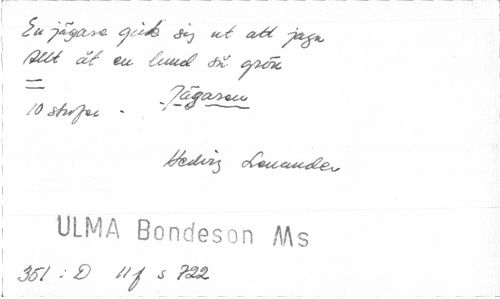 En jägare gick sig ut att jaga
Allt åt en lund så grön
=
10 strofer. Jägaren
Hedvig Lenander
ULMA Bondeson Ms
351 : D 11 f s 722